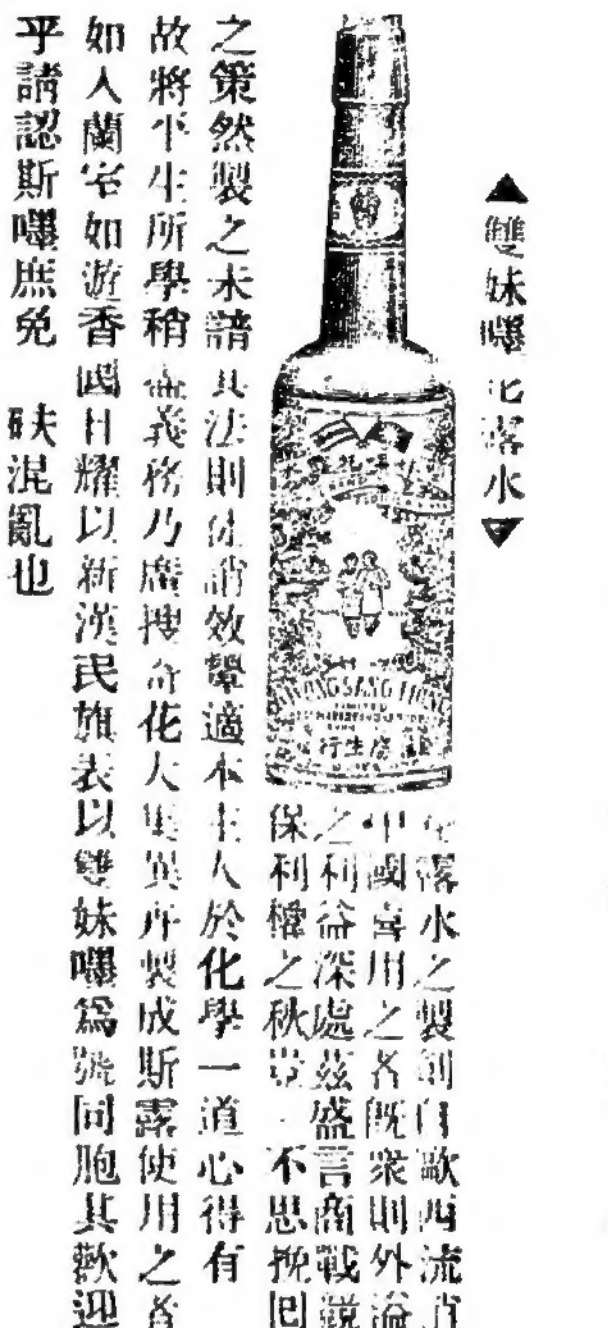 ▲雙妹嚜花露水▼
KWONG SANG HONG
LIMITED
行生廣
花露水之製創自歐西流消
中國喜用之者既衆則外溢
之利益深處茲盛言商戰競
保利權之秋豈 不思挽回
之策然製之未諳其法則徒誚效顰適本主人於化學一道心得有
故將平生所學稍盡義務乃廣搜奇花大集異卉製成斯露使用之者
如入蘭室如游香國日耀以新漢民旗表以雙妹嚜爲號同胞其歡迎
乎請認斯嚜庶免 砆混亂也